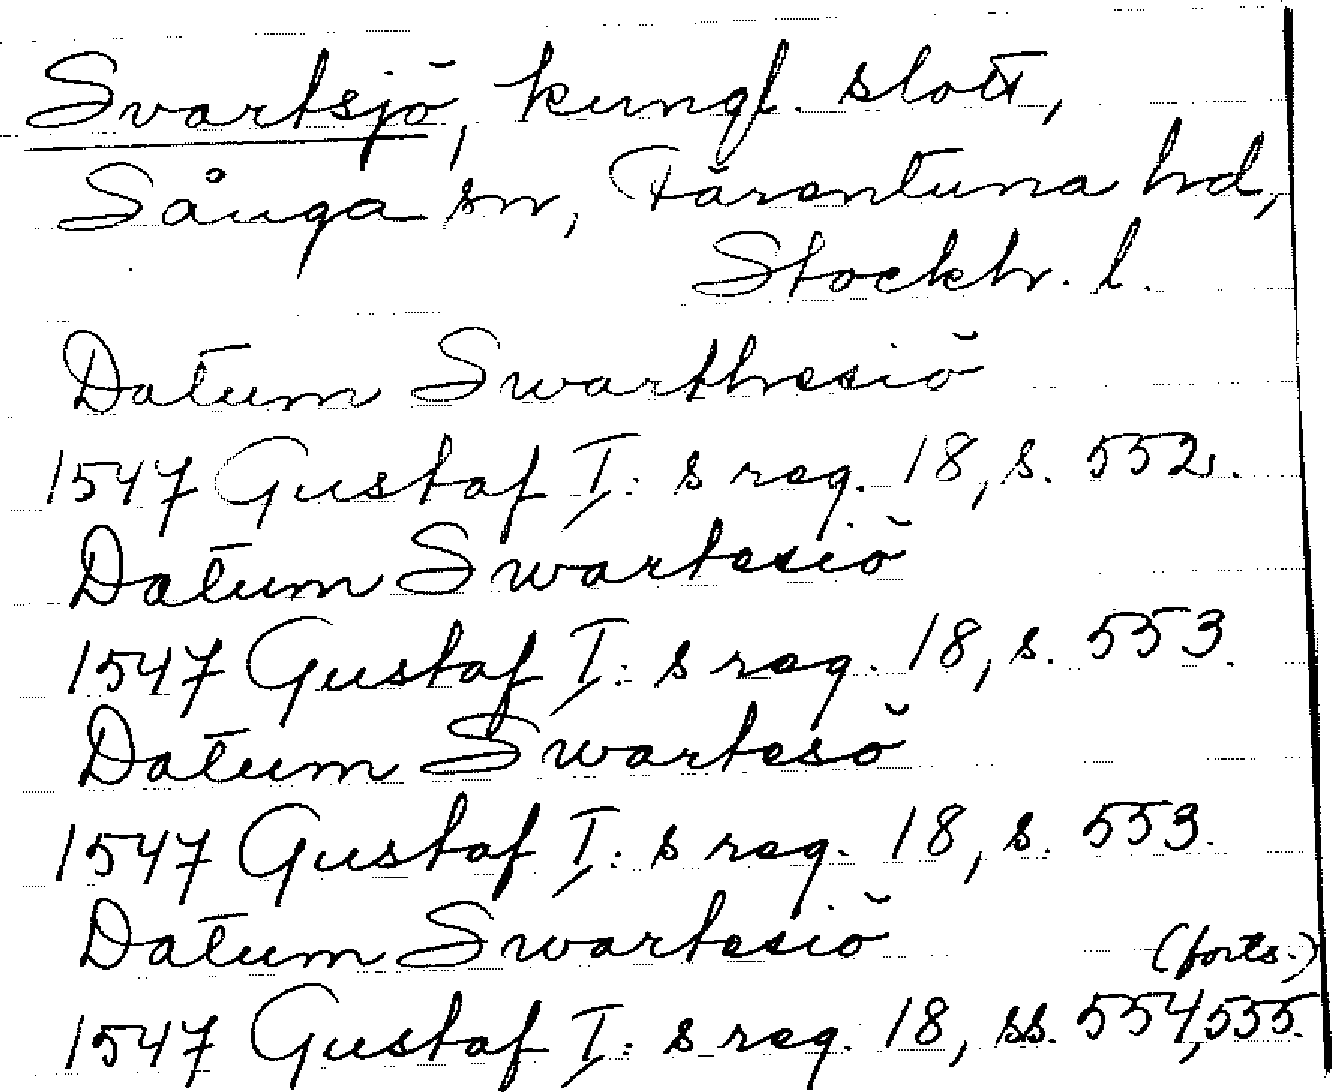 Svartsjö, kungl. slott,
Sånga sn, Färentuna hd,
Stockh. l.
Datum Swarthesiö
1547 Gustaf I: s reg. 18, s. 552.
Datum Swartesiö
1547 Gustaf I: s reg. 18, s. 553.
Datum Swartesö
1547 Gustaf I: s reg. 18, s. 553.
Datum Swartesiö
(forts.)
1547 Gustaf I: s reg. 18, ss. 554, 555.